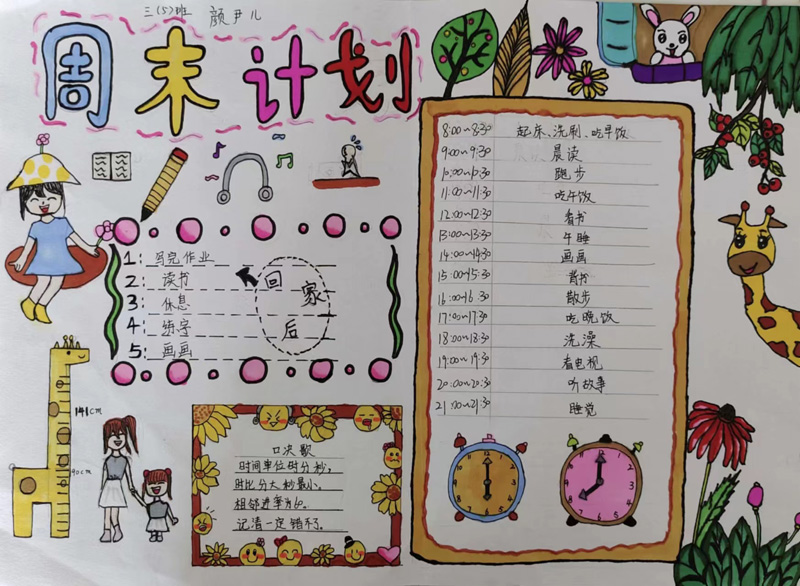 三(5)班 颜尹儿
周末计划
1: 写完作业
2: 读书
3: 休息
4: 练字
5: 画画
回家后
8:00~8:30 起床、洗刷、吃早饭
9:00~9:30 晨读
10:00~10:30 跑步
11:00~11:30 吃午饭
12:00~12:30 看书
13:00~13:30 午睡
14:00~14:30 画画
15:00~15:30 背书
16:00~16:30 散步
17:00~17:30 吃晚饭
18:00~18:30 洗澡
19:00~19:30 看电视
20:00~20:30 听故事
21:00~21:30 睡觉
141cm
90cm
口决歌
时间单位时分秒,
时比分大秒最小。
相邻进率为60。
记清一定错不了。